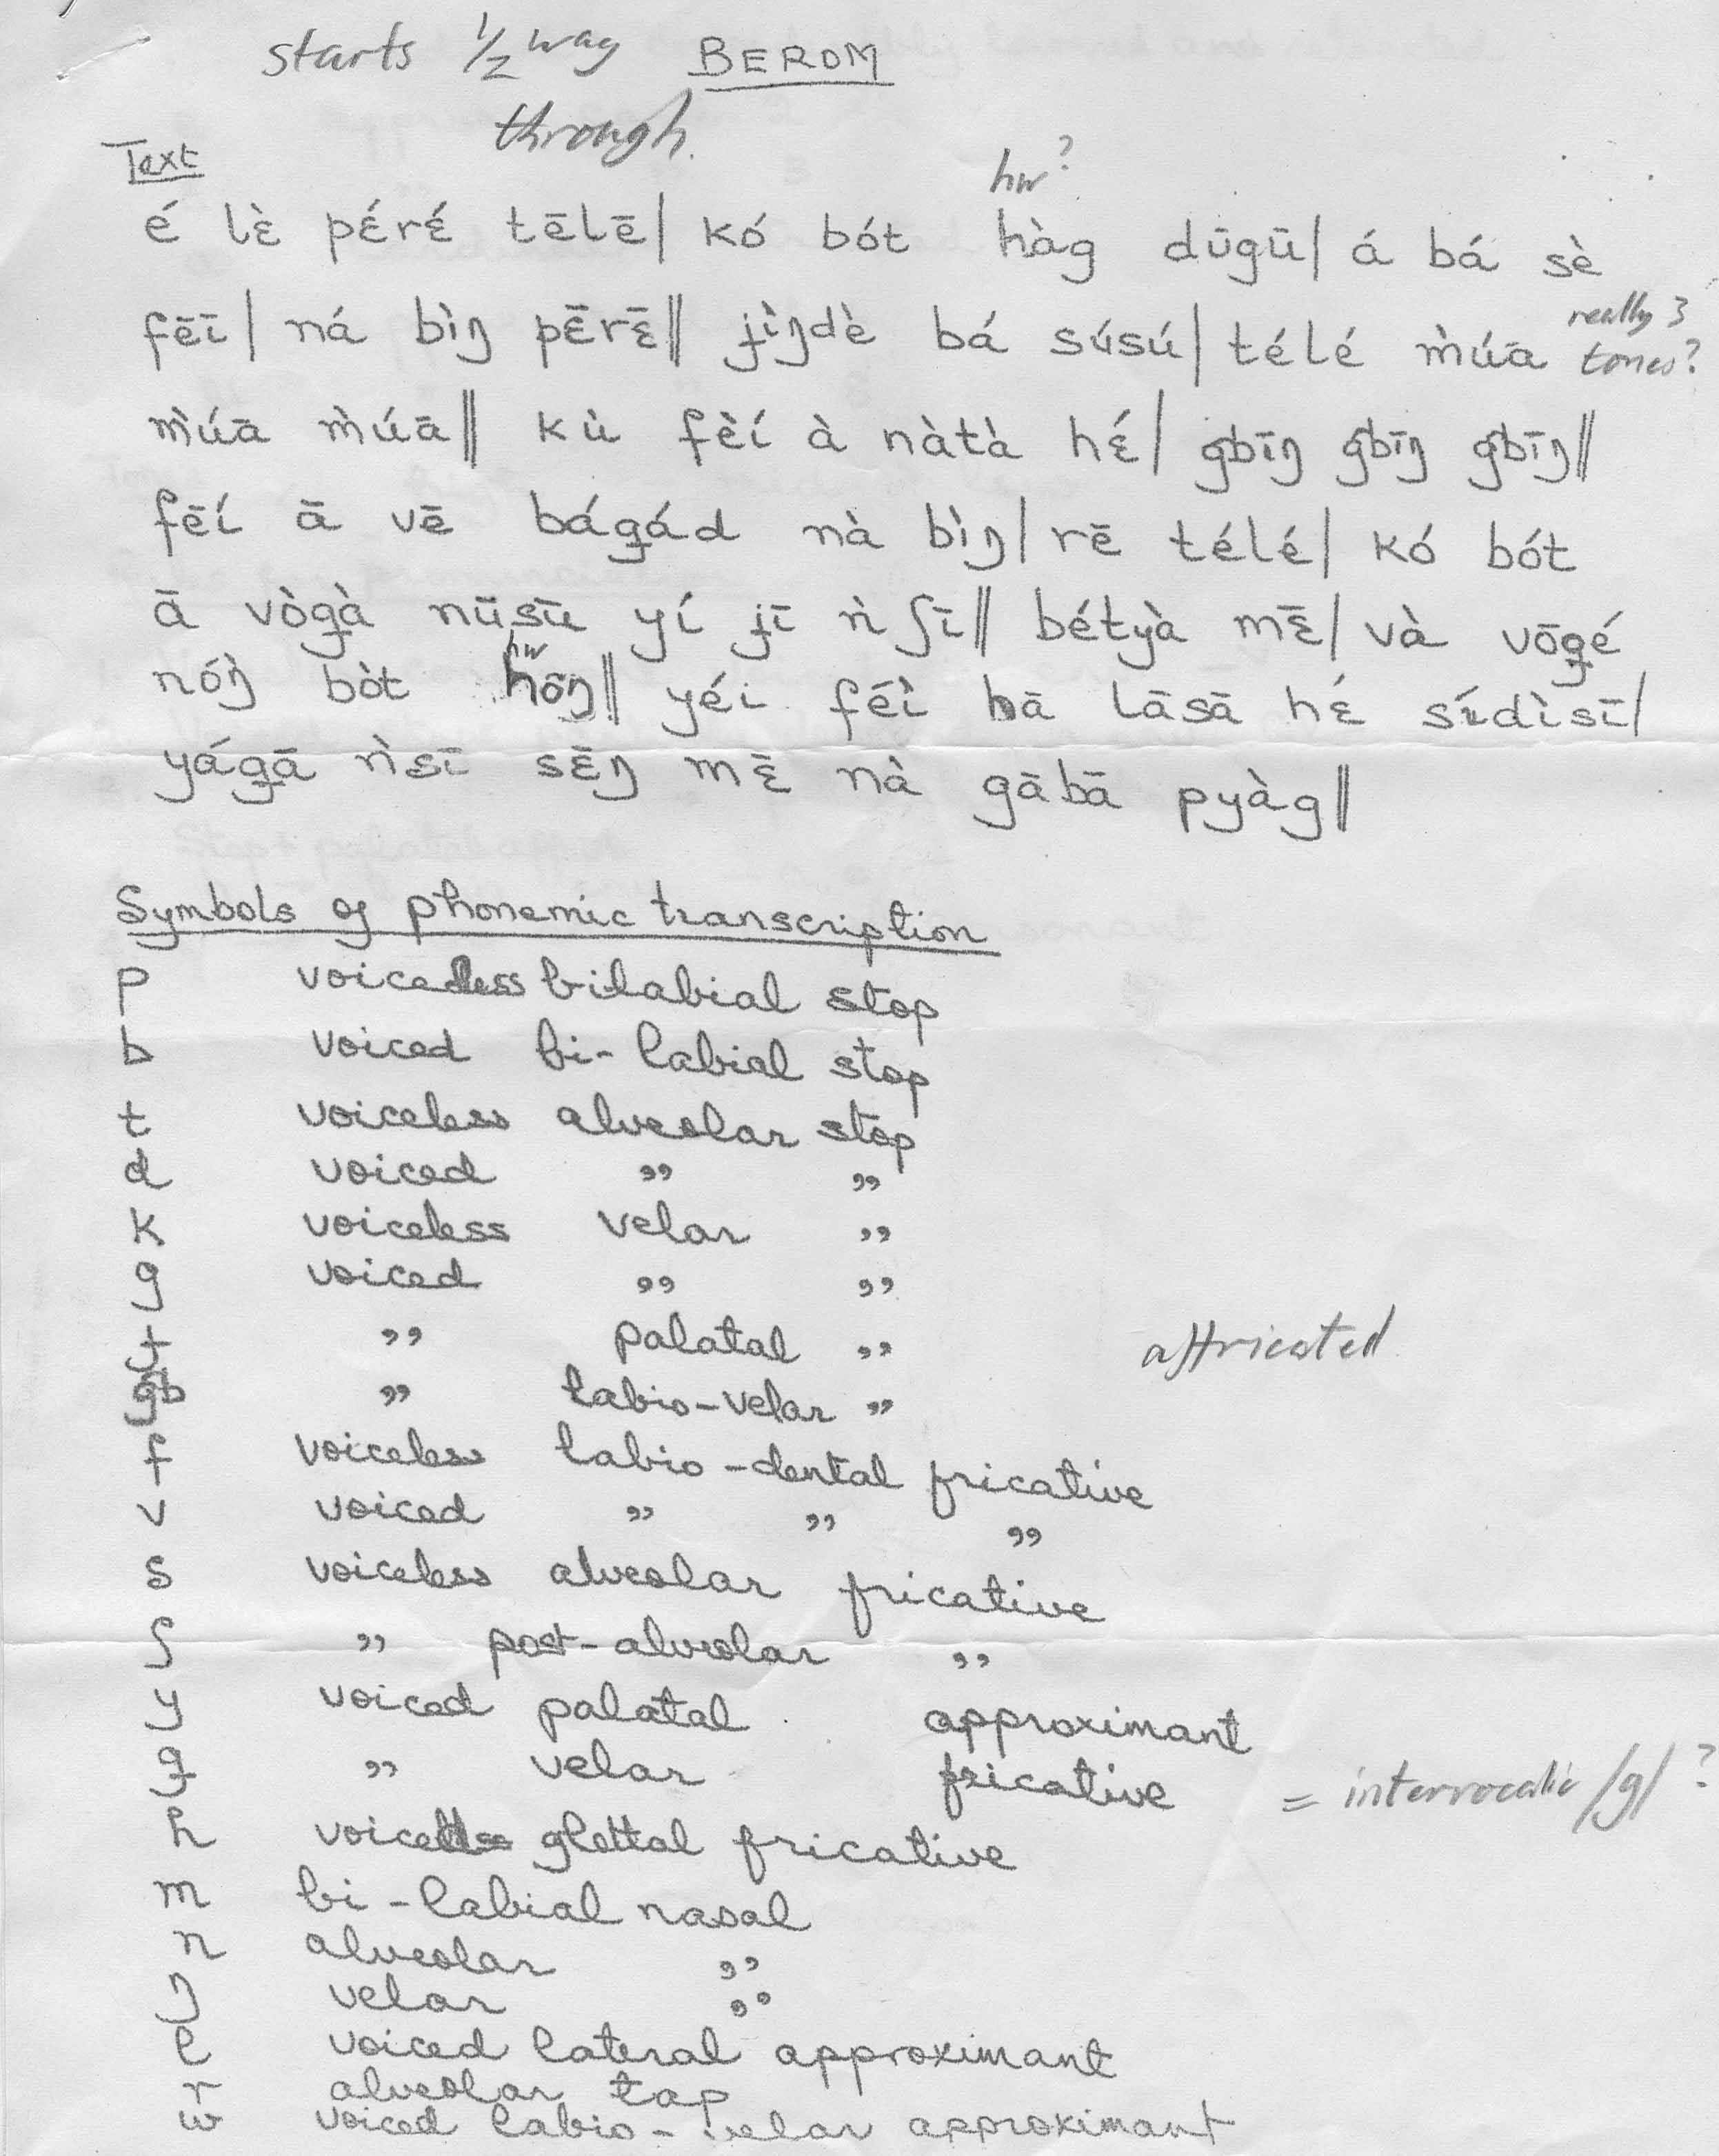 starts 1/2 way BEROM
through.
Text
hw?
é lɛ̀ pɛ́rɛ́ tēlē| kó bót hàg dūgū| á bá sè
fēī| ná bìŋ pɛ̄rɛ̄‖ ɟìŋdè bá súsú| télé m̀úā really 3 tones?
m̀úā m̀úā‖ kù fèí à nàtà hɛ́| g͡bīŋ g͡bīŋ g͡bīŋ‖
fēí ā vē báǥád nà bìŋ| rē télé| kó bót
ā vòǥà nūsū yí ɟī ǹʃī‖ bétyà mɛ̄| và vōǥé
hw
nóŋ̀ bòt hōŋ‖ yéi féì bā lāsā hɛ́ sídìsī|
yáǥā ǹsī sēŋ mɛ̄ nà gābā pyàg‖
Symbols of phonemic transcription
p voiceless bilabial stop
b voiced bi-labial stop
t voiceless alveolar stop
d voiced ,, ,,
k voiceless velar ,,
g voiced ,, ,,
ɟ ,, palatal ,, affricated
g͡b ,, labio-velar ,,
f voiceless labio-dental fricative
v voiced ,, ,, ,,
s voiceless alveolar fricative
ʃ ,, post-alveolar ,,
y voiced palatal approximant
ǥ ,, velar fricative = intervocalic /g/ ?
h voiceless glottal fricative
m bi-labial nasal
n alveolar ,,
ŋ velar ,,
l voiced lateral approximant
r alveolar tap
w voiced labio-velar approximant